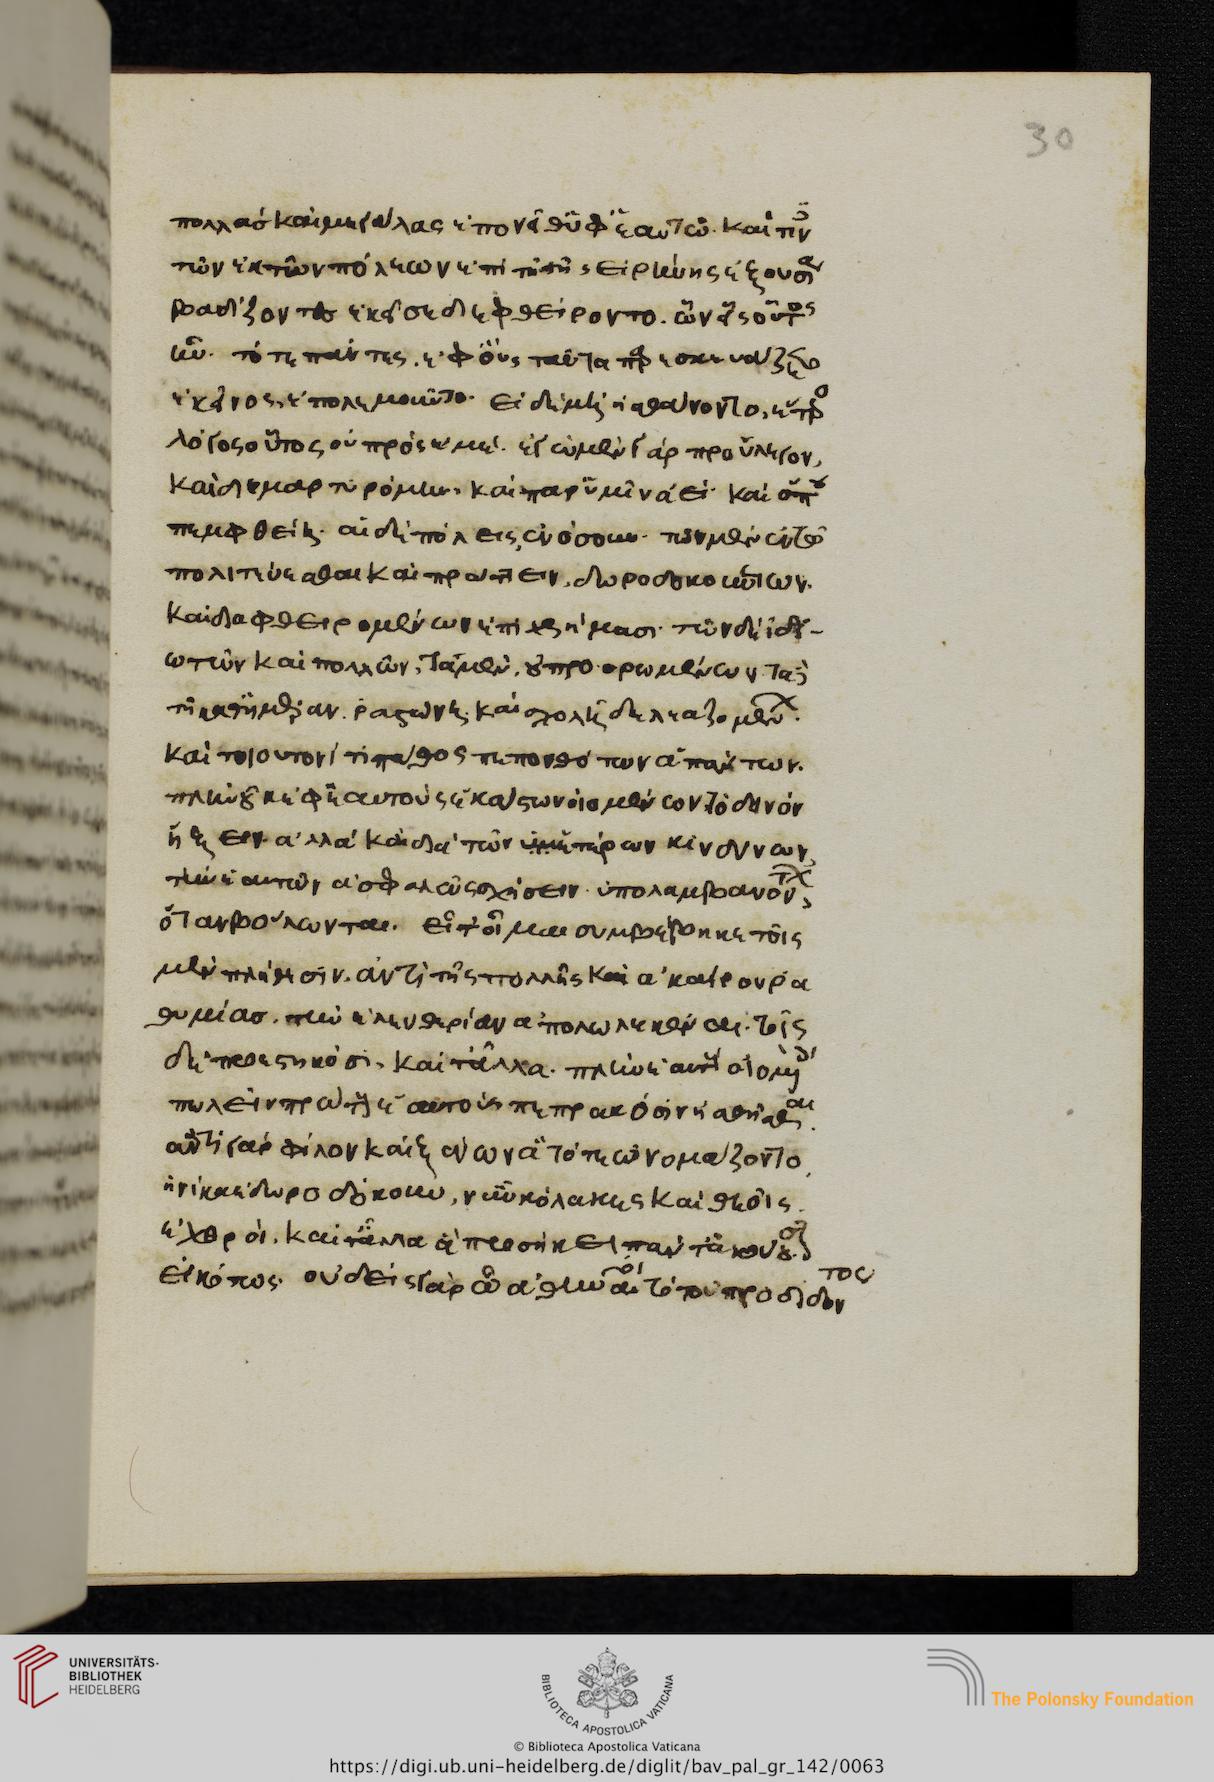 πολλὰσ καὶ μεγάλας ἐποιεῖθ' ὑφ' ἑαυτῶ· καί τινων
τῶν ἐκ τῶν πόλεων ἐπὶ τῆ τῆς εἰρήνης ἐξουσία
βαδίζοντεσ ἐκεῖσε διεφθείροντο. ὧν εἷς οὗτος
ἦν. τότε πάντες, ἐφ' οὓς ταῦτα παρεσκευάζετο
ἐκεῖνος, ἐπολεμοῦντο. εἰ δὲ μὴ ἠσθάνοντο, ἕτερο
λόγος οὗτος οὐ πρὸς ἐμέ. ἐγὼ μὲν γὰρ προὔλεγον,
καὶ διεμαρτυρόμην, καὶ παρ' ὑμῖν ἀεί. καὶ ὅπου
πεμφθείην. αἱ δὲ πόλεις, ἐνόσουν. τῶν μὲν ἐν τῶ
πολιτεύεσθαι καὶ πράττειν, δωροδοκούντων.
καὶ διαφθειρομένων ἐπὶ χρήμασι. τῶν δὲ ἰδι-
ωτῶν καὶ πολλῶν, τὰ μὲν, οὐ προορωμένων τὰ δὲ
τῆ καθ' ἡμέραν ῥαστώνη, καὶ σχολῆ δελεαζομένων.
καὶ τοιουτονί τι πάθος πεπονθότων ἁπάντων.
πλὴν οὐκ ἐφ' ἑαυτοὺς ἑκάστων οἰομένων τὸ δεινὸν
ἥξειν. ἀλλὰ καὶ διὰ τῶν ἑτέρων κινδύνων,
τὴν ἑαυτῶν ἀσφαλῶς σχήσειν ὑπολαμβανόντων,
ὅταν βούλωνται. εἶτ' οἶμαι συμβέβηκε τοῖς
μὲν πλήθεσιν. ἀντὶ τῆς πολλῆς καὶ ἀκαίρου ῥα
θυμίασ. τὴν ἐλευθερίαν ἀπολωλεκέναι. τοῖς
δὲ προεστηκόσι, καὶ τἆλλα. πλὴν ἑαυτοὺς οἰομένοις
πωλεῖν πρώτους ἑαυτοὺς πεπρακόσιν ἠσθῆσθαι.
ἀντὶ γὰρ φίλων καὶ ξένων ἃ τότε ὠνομάζοντο,
ἡνίκα ἐδωροδόκουν, νῦν κόλακες καὶ θεοῖς
ἐχθροὶ. καὶ τἆλλα ἃ προσήκει πάντα ἀκούουσιν.
εἰκότως. οὐδεὶς γὰρ ὦ ἀθηναῖοι τὸ τοῦ προδιδόντος
30
UNIVERSITÄTS-
BIBLIOTHEK
HEIDELBERG
BIBLIOTECA APOSTOLICA VATICANA
The Polonsky Foundation
© Biblioteca Apostolica Vaticana
https://digi.ub.uni-heidelberg.de/diglit/bav_pal_gr_142/0063